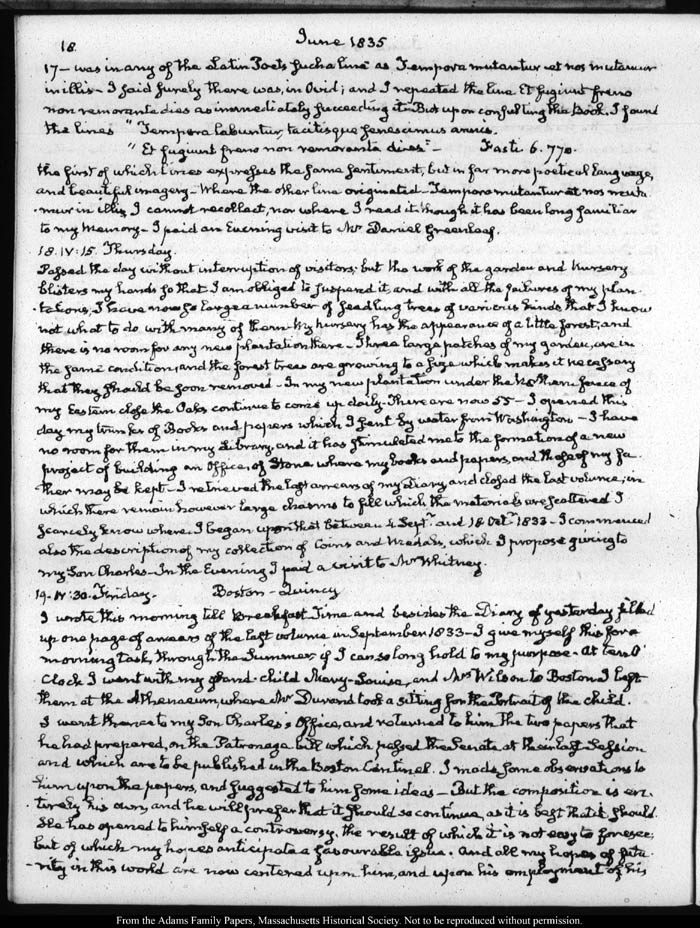 18. June 1835
17— was in any of the Latin Poets such a line as Tempora mutantur et nos mutamur
in illis— I said surely there was, in Ovid; and I repeated the line Et fugiunt freno
non remorante dies as immediately succeeding it. But upon consulting the Book, I found
the lines " Tempora labuntur, tacitisque senescimus annis.
" Et fugiunt freno non remorante dies"— Fasti 6. 770.
the first of which lines expresses the same sentiment, but in far more poetical language,
and beautiful imagery— Where the other line originated— Tempora mutantur et nos muta
mur in illis, I cannot recollect, nor where I read it though it has been long familiar
to my memory— I paid an Evening visit to Mr Daniel Greenleaf.
18. IV:15. Thursday.
Passed the day without interruption of visitors; but the work of the garden and nursery
blisters my hands so that I am obliged to suspend it, and with all the failures of my plan-
tations, I have now so large a number of seedling trees of various kinds that I know
not what to do with many of them. My nursery has the appearance of a little forest, and
there is no room for any new plantation there— Three large patches of my garden, are in
the same condition, and the forest trees are growing to a size which makes it necessary
that they should be soon removed— In my new plantation under the Northern fence of
my Eastern close the Oaks continue to come up daily. There are now 55— I opened this
day my trunks of Books and papers which I sent by water from Washington— I have
no room for them in my Library, and it has stimulated me to the formation of a new
project of building an Office, of Stone where my books and papers, and those of my fa-
ther may be kept— I retrieved the last arrears of my Diary and closed the last volume; in
which there remain however large chasms to fill which the materials are scattered I
scarcely know where. I began upon that between 4 Septr. and 18 Octr. 1833— I commenced
also the description of my collection of Coins and Medals, which I propose giving to
my Son Charles— In the Evening I paid a visit to Mr Whitney.
19. IV:30. Friday. Boston— Quincy
I wrote this morning till Breakfast Time and besides the Diary of yesterday filled
up one page of arrears of the last volume in September 1833— I give myself this for a
morning task, through the Summer, if I can so long hold to my purpose. At ten O'
Clock I went with my grand-child Mary-Louisa, and Mrs Wilson to Boston. I left
them at the Athenaeum, where Mr Durand took a sitting for the Portrait of the child.
I went thence to my Son Charles's Office, and returned to him the two papers that
he had prepared, on the Patronage bill which passed the Senate at their last Session
and which are to be published in the Boston Centinel. I made some observations to
him upon the papers, and suggested to him some ideas— But the composition is en-
tirely his own, and he will prefer that it should so continue, as it is best that it should.
He has opened to himself a controversy, the result of which it is not easy to foresee;
but of which my hopes anticipate a favourable issue. And all my hopes of futu-
rity in this world are now centered upon him, and upon his employment of his
From the Adams Family Papers, Massachusetts Historical Society. Not to be reproduced without permission.